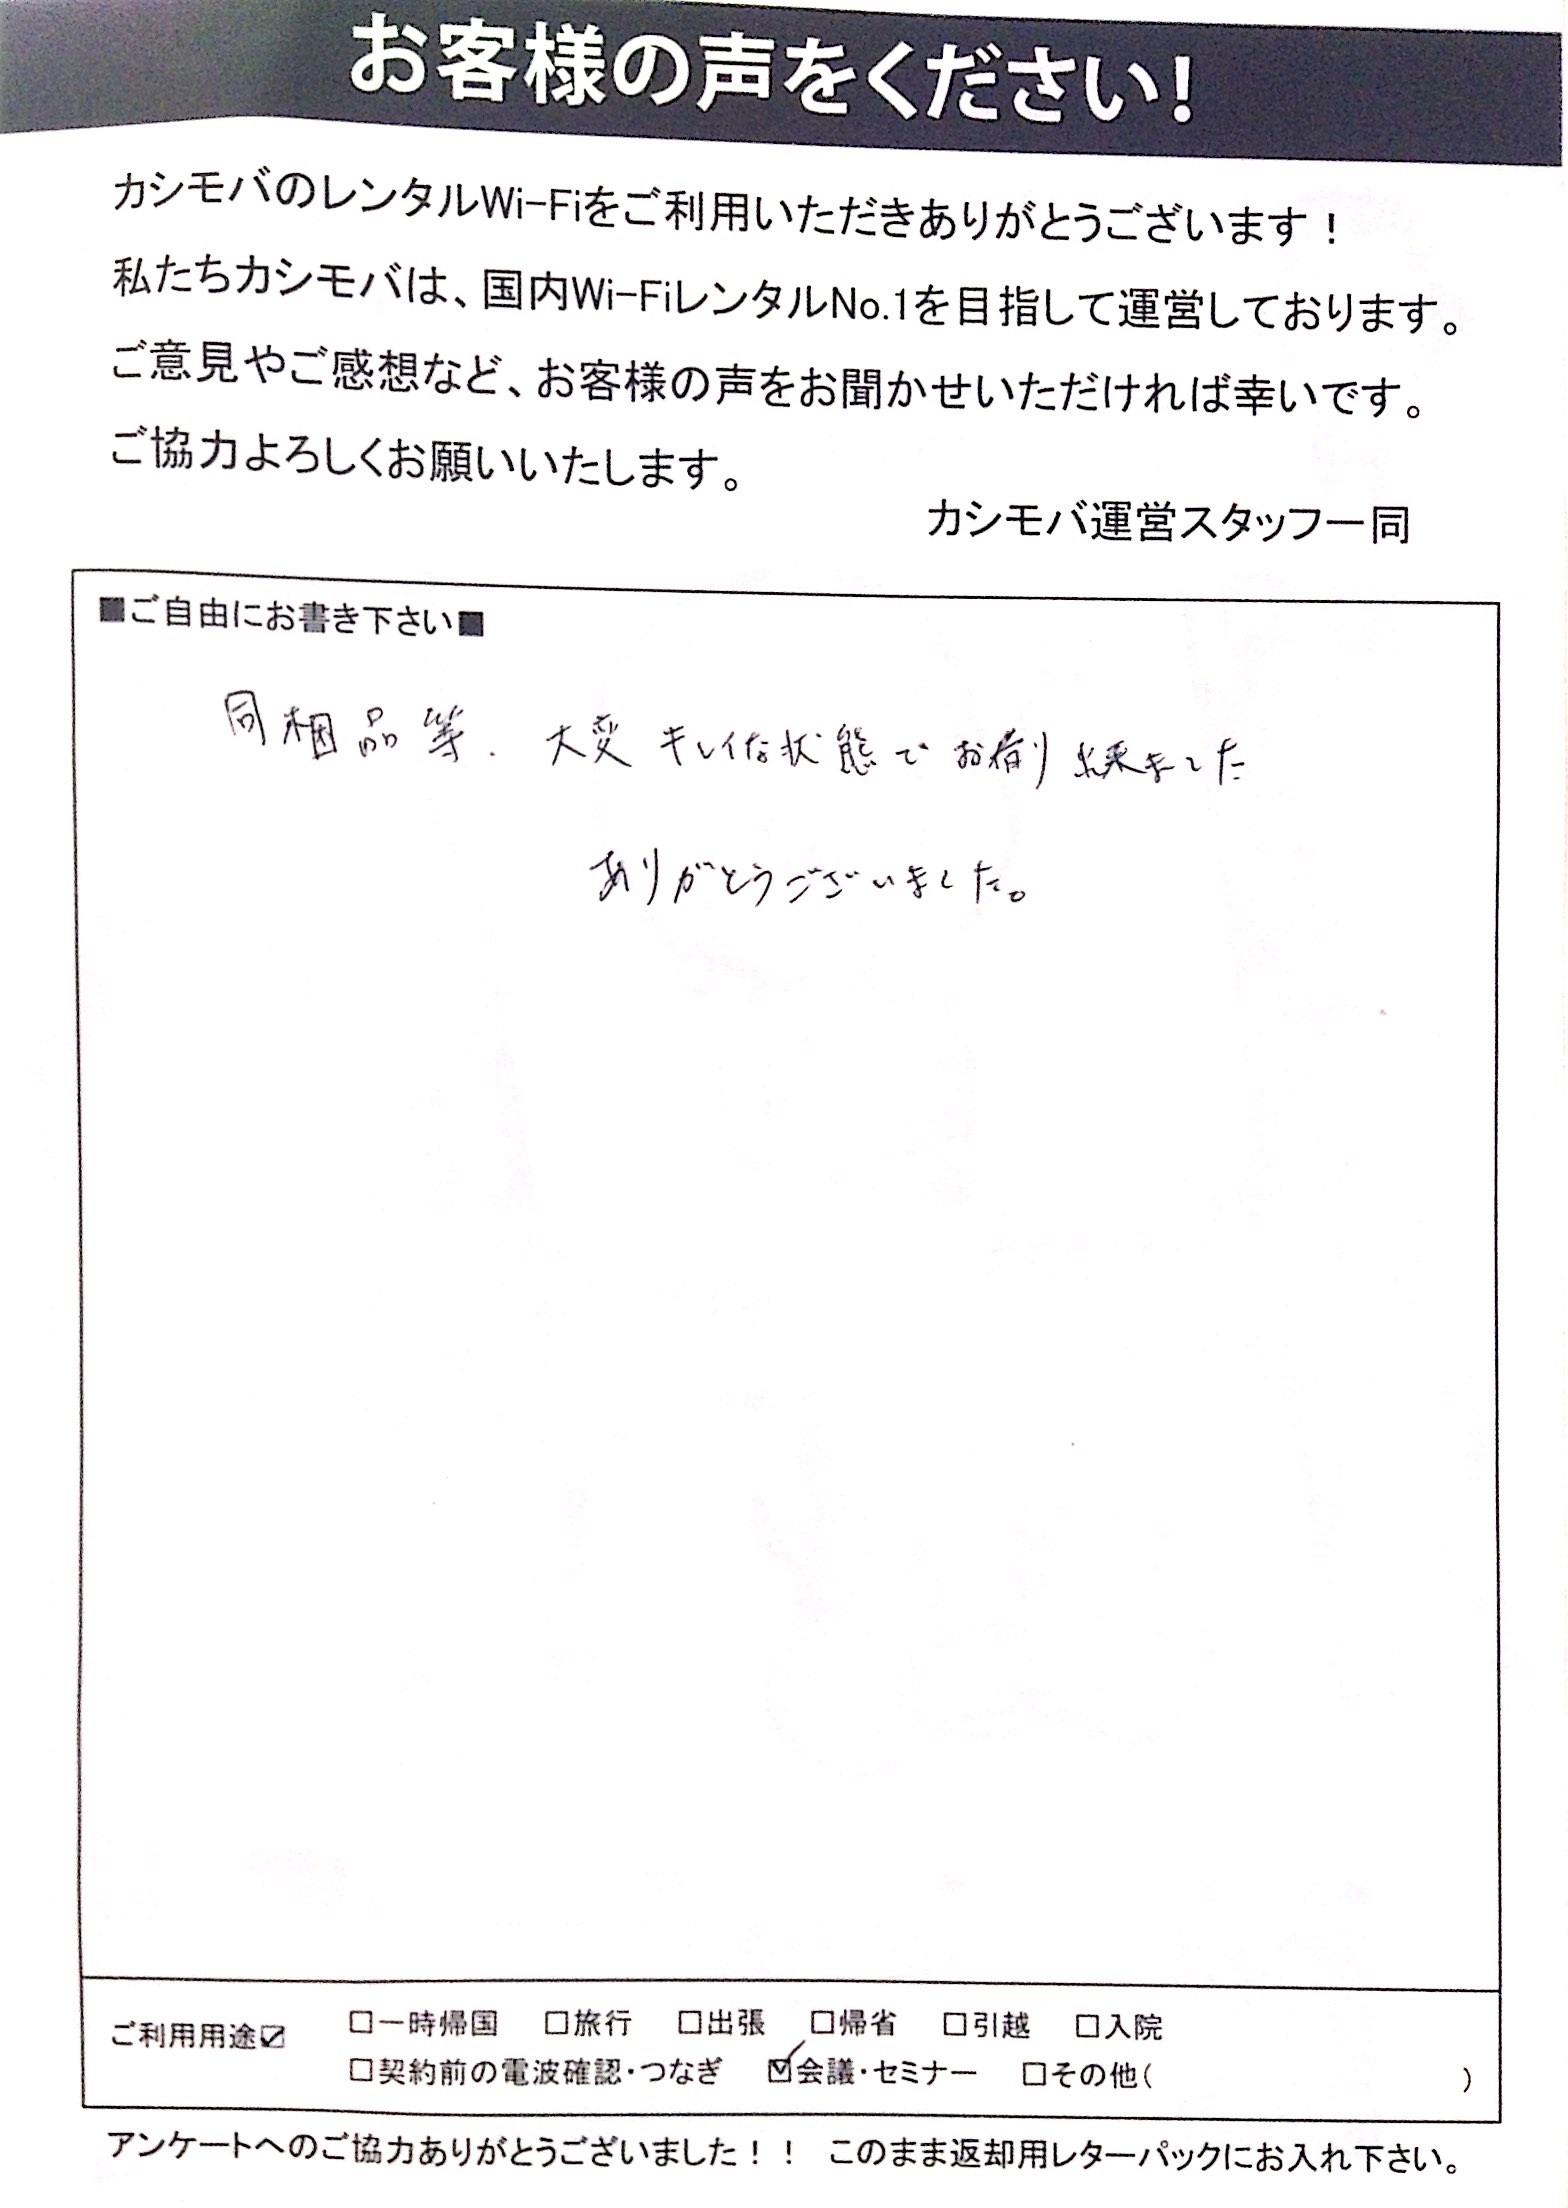 お客様の声をください!
カシモバのレンタルWi-Fiをご利用いただきありがとうございます！
私たちカシモバは、国内Wi-FiレンタルNo.1を目指して運営しております。
ご意見やご感想など、お客様の声をお聞かせいただければ幸いです。
ご協力よろしくお願いいたします。
カシモバ運営スタッフ一同
■ご自由にお書き下さい■
同梱品等、大変キレイな状態でお借り出来ました
ありがとうございました。
ご利用用途☑
□一時帰国 □旅行 □出張 □帰省 □引越 □入院
□契約前の電波確認・つなぎ ☑会議・セミナー □その他( )
アンケートへのご協力ありがとうございました！！ このまま返却用レターパックにお入れ下さい。